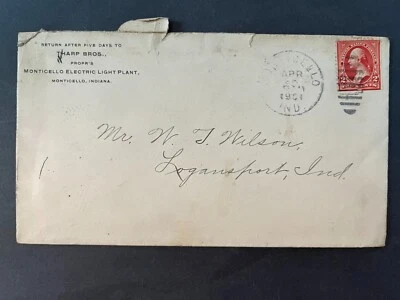 RETURN AFTER FIVE DAYS TO
THARP BROS.,
PROPR'S
MONTICELLO ELECTRIC LIGHT PLANT,
MONTICELLO, INDIANA.
APR
1901
IND.
2 2
CENTS
Mr. W. T. Wilson,
Logansport, Ind.